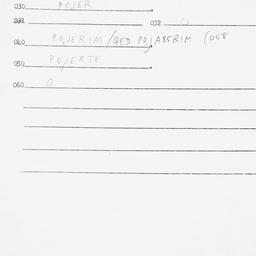 030 POJER
031 032 0
040 POJERIM / QED POJABERIM (058
050 POJERTE
060 0